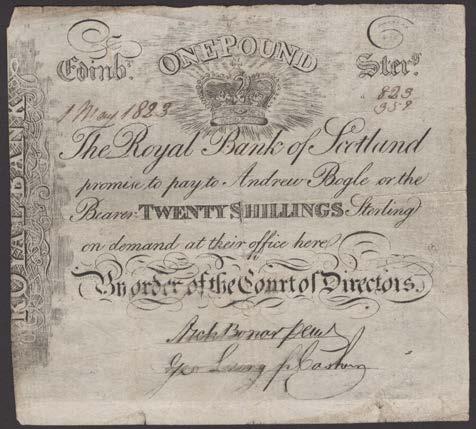 ONE POUND
Edinbr. Sterg.
1 May 1823 823
358
The Royal Bank of Scotland
promise to pay to Andrew Bogle or the
Bearer TWENTY SHILLINGS Sterling
on demand at their office here
By order of the Court of Directors.
Arch Bonar
Geo
ROYAL BANK